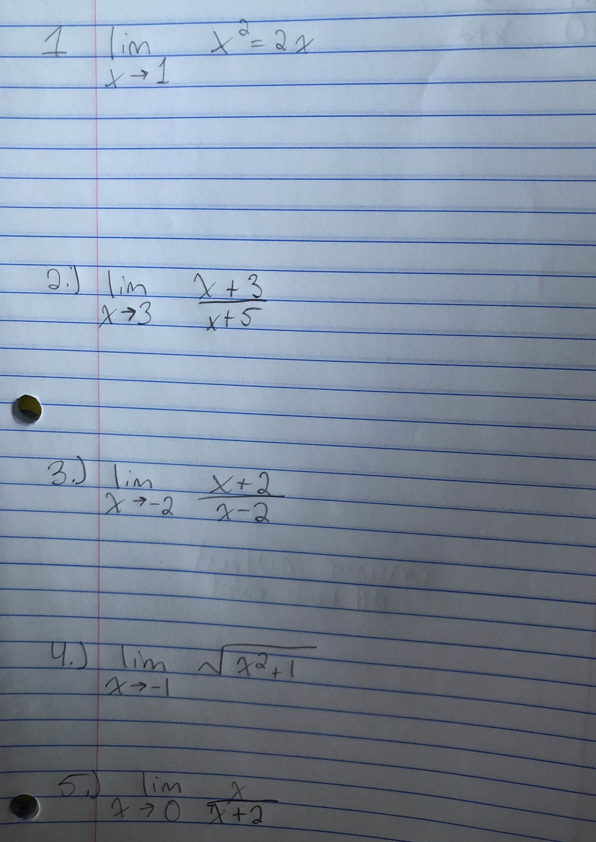 1 lim x→1 x² = 2x
2.) lim x→3 (x + 3)/(x+5)
3.) lim x→-2 (x+2)/(x-2)
4.) lim x→-1 √(x²+1)
5.) lim x→0 x/(x+2)